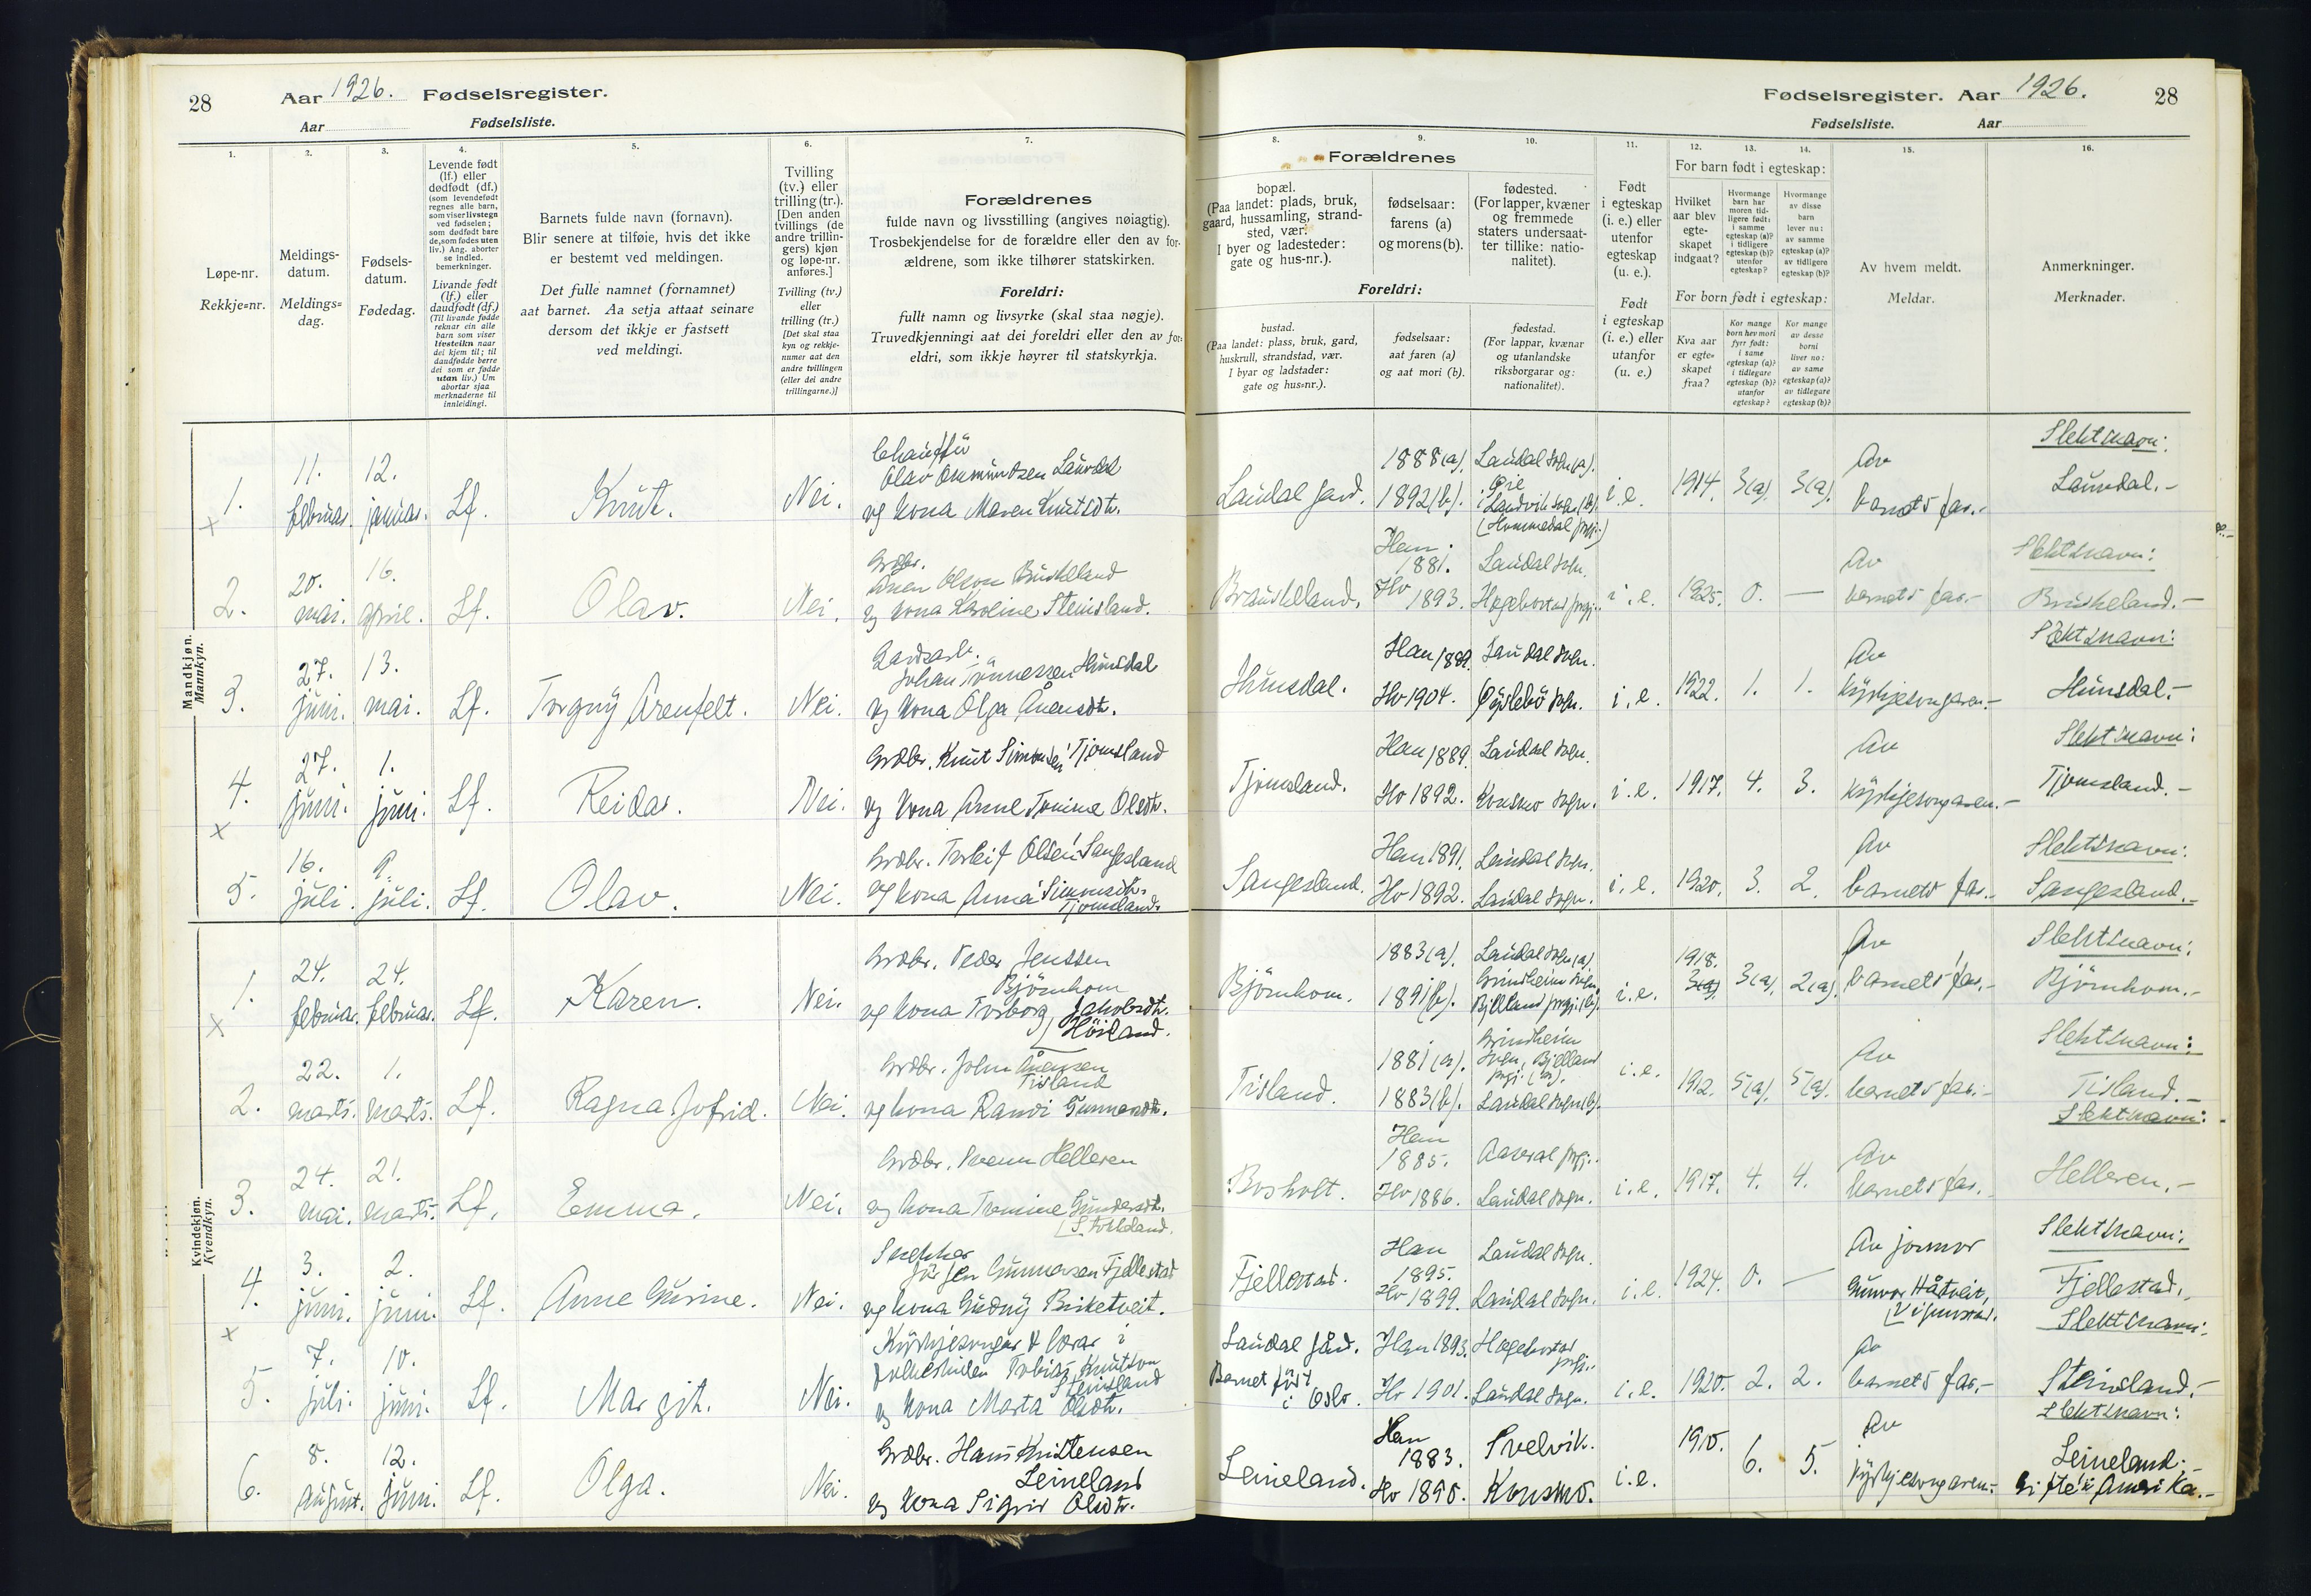 28
Aar 1926. Fødselsregister.
Aar Fødselsliste.
Fødselsregister. Aar 1926.
28
Fødselsliste. Aar
1.
Løpe-nr.
Rekkje=nr.
2.
Meldings-
datum.
Meldings=
dag.
3.
Fødsels-
datum.
Fødedag.
4.
Levende født
(lf.) eller
dødfødt (df.)
(som levendefødt
regnes alle barn,
som viser livstegn
ved fødselen;
som dødfødt bare
de, som fødes uten
liv.) Ang. aborter
se indled.
bemerkninger.
Livande født
(lf.) eller
daudfødt (df.)
(Til livande fødde
reknar ein alle
barn som viser
livsteikn naar
dei kjem til; til
daudfødde berre
dei som er fødde
utan liv.) Um
abortar sjaa
merknaderne til
innleidingi.
5.
Barnets fulde navn (fornavn).
Blir senere at tilføie, hvis det ikke
er bestemt ved meldingen.
Det fulle namnet (fornamnet)
aat barnet. Aa setja attaat seinare
dersom det ikkje er fastsett
ved meldingi.
6.
Tvilling
(tv.) eller
trilling (tr.).
[Den anden
tvillings (de
andre trillin-
gers) kjøn
og løpe-nr.
anføres.]
Tvilling (tv.)
eller
trilling (tr.)
[Det skal staa
kyn og rekkje-
numer aat den
andre tvillingen
(eller dei andre
trillingarne.)]
7.
Forældrenes
fulde navn og livsstilling (angives nøiagtig).
Trosbekjendelse for de forældre eller den av for-
ældrene, som ikke tilhører statskirken.
Foreldri:
fullt namn og livsyrke (skal staa nøgje).
Truvedkjenningi aat dei foreldri eller den av for-
eldri, som ikkje høyrer til statskyrkja.
8.
9.
10.
Forældrenes
bopæl.
(Paa landet: plads, bruk,
gaard, hussamling, strand-
sted, vær.
I byer og ladesteder:
gate og hus-nr.).
fødselsaar:
farens (a)
og morens (b).
fødested.
(For lapper, kvæner
og fremmede
staters undersaat-
ter tillike: natio-
nalitet).
Foreldri:
bustad.
(Paa landet: plass, bruk, gard,
huskrull, strandstad, vær.
I byar og ladstader:
gate og hus=nr.).
fødselsaar:
aat faren (a)
og aat mori (b).
fødestad.
(For lappar, kvænar
og utanlandske
riksborgarar og:
nationalitet).
11.
Født
i egteskap
(i. e.) eller
utenfor
egteskap
(u. e.).
Født
i egteskap
(i. e.) eller
utanfor
(u. e.)
12.
13.
14.
For barn født i egteskap:
Hvilket
aar blev
egte-
skapet
indgaat?
Hvormange
barn har
moren tid-
ligere født:
i samme
egteskap (a)?
i tidligere
egteskap (b)?
utenfor
egteskap?
Hvormange
av disse
barn
lever nu:
av samme
egteskap (a)?
av tidligere
egteskap (b)?
For born født i egteskap:
Kva aar
er egte=
skapet
fraa?
Kor mange
born hev mori
fyrr født:
i same
egteskap (a)?
i tidlegare
egteskap (b)?
utanfor
egteskap?
Kor mange
av desse
borni
liver no:
av same
egteskap (a)?
av tidlegare
egteskap (b)?
15.
Av hvem meldt.
Meldar.
16.
Anmerkninger.
Merknader.
Mandkjøn.
Mannkyn.
1. 11. februar. 12. januar. Lf. Knut. Nei.
Chauffür
Olav Ommundsen Laudal
og kona Maren Knutsdtr.
Laudal gard. 1888(a). 1892(b). Laudal sogn (a).
Landvik sogn (b).
i.e. 1914. 3(a). 3(a). Av barnets far.-
Slektsnavn: Laudal.-
2. 20. mai. 16. april. Lf. Olav. Nei.
Grdbr.
Ånen Olsen Bruskeland
og kona Karoline Steinsland.
Bruskeland. Han 1881. Ho 1893. Laudal sogn. Hægebostad prgj.
i.e. 1925. 0. — Av barnets far.-
Slektsnavn: Bruskeland.-
3. 27. juni. 13. mai. Lf. Torgny Arenfelt. Nei.
Gardsarb.
Johan Tönnessen Hunsdal
og kona Olga Ånensdtr.
Hunsdal. Han 1889. Ho 1904. Laudal sogn. Øyslebö sogn.
i.e. 1922. 1. 1. Av kyrkjesongaren.-
Slektsnavn: Hunsdal.-
4. 27. juni. 1. juni. Lf. Reidar. Nei.
Grdbr. Knut Simonsen Tjomsland
og kona Anne Tomine Olsdtr.
Tjomsland. Han 1889. Ho 1892. Laudal sogn. Konsmo sogn.
i.e. 1917. 4. 3. Av kyrkjesongaren.-
Slektsnavn: Tjomsland.-
5. 16. juli. 9. juli. Lf. Olav. Nei.
Grdbr. Torleif Olsen Sangesland
og kona Anna Simonsdtr. Tjomsland.
Sangesland. Han 1891. Ho 1892. Laudal sogn. Laudal sogn.
i.e. 1920. 3. 2. Av barnets far.-
Slektsnavn: Sangesland.-
Kvindekjøn.
Kvendkyn.
1. 24. februar. 24. februar. Lf. Karen. Nei.
Grdbr. Peder Jenssen
Björnhom
og kona Torborg Jakobsdtr.
Höiland.
Björnhom. 1883(a). 1891(b). Laudal sogn (a). Grindheim sogn, Bjelland prgj. (b).
i.e. 1918. 3(a). 3(a). 2(a). Av barnets far.-
Slektsnavn: Björnhom.-
2. 22. marts. 1. marts. Lf. Ragna Jofrid. Nei.
Grdbr. John Ånensen
Tisland
og kona Randi Gunnarsdtr.
Tisland. 1881(a). 1883(b). Grindheim sogn, Bjelland prgj. (a). Laudal sogn (b).
i.e. 1912. 5(a). 5(a). Av barnets far.-
Slektsnavn: Tisland.-
3. 24. mai. 21. marts. Lf. Emma. Nei.
Grdbr. Svenn Helleren
og kona Tomine Gundersdtr.
Stokkeland.
Bosholt. Han 1885. Ho 1886. Aaseral prgj. Laudal sogn.
i.e. 1917. 4. 4. Av barnets far.
Slektsnavn: Helleren.-
4. 3. juni. 2. juni. Lf. Anne Gurine. Nei.
Snekker
Jörgen Gunnarsen Fjellestad
og kona Gudny Birketveit.
Fjellestad. Han 1895. Ho 1899. Laudal sogn. Laudal sogn.
i.e. 1924. 0. — Av jormor Gunvor Håtveit,
Slektsnavn: Fjellestad.
5. 7. juli. 10. juni. Lf. Margit. Nei.
Kyrkjesongar & lærar i
folkeskulen Tobias Knutson
Steinsland
og kona Marta Olsdtr.
Laudal gård. Barnet födt i Oslo. Han 1893. Ho 1901. Hægebostad prgj. Laudal sogn.
i.e. 1920. 2. 2. Av barnets far.-
Slektsnavn: Steinsland.-
6. 8. august. 12. juni. Lf. Olga. Nei.
Grdbr. Hans Kristensen
Leineland
og kona Sigrid Olsdtr.
Leineland. Han 1883. Ho 1890. Svelvik. Konsmo.
i.e. 1910. 6. 5. Av kyrkjesongaren.-
Slektsnavn: Leineland.-
Gifte i Amerika.-